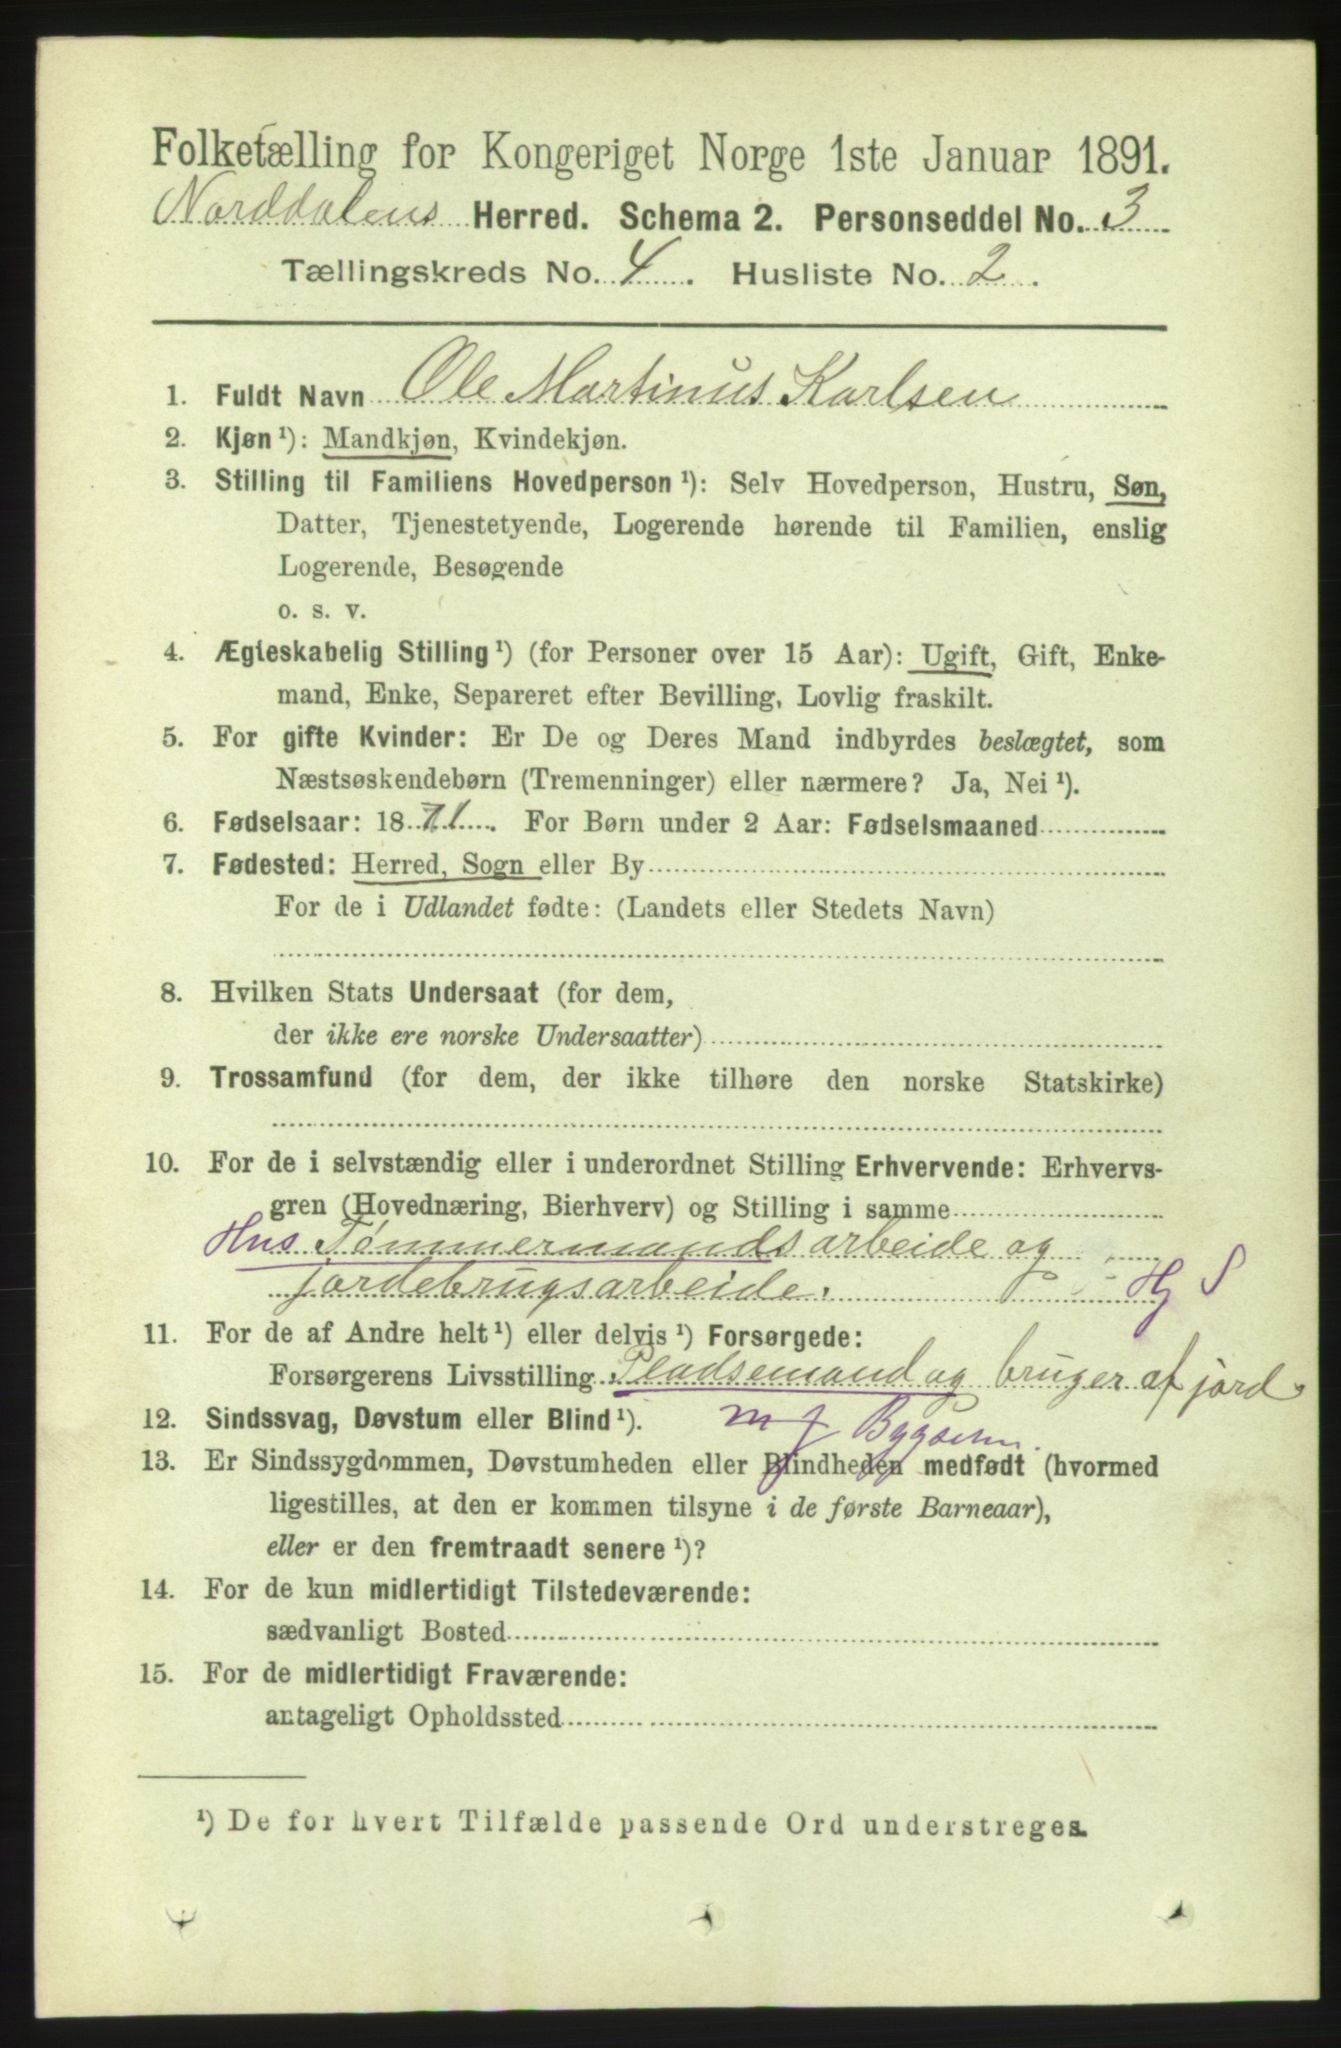 Folketælling for Kongeriget Norge 1ste Januar 1891.
Norddalens Herred. Schema 2. Personseddel No. 3
Tællingskreds No. 4. Husliste No. 2.
1. Fuldt Navn Ole Martinus Karlsen
2. Kjøn ¹): Mandkjøn, Kvindekjøn.
3. Stilling til Familiens Hovedperson ¹): Selv Hovedperson, Hustru, Søn,
Datter, Tjenestetyende, Logerende hørende til Familien, enslig
Logerende, Besøgende
o. s. v.
4. Ægteskabelig Stilling ¹) (for Personer over 15 Aar): Ugift, Gift, Enke-
mand, Enke, Separeret efter Bevilling, Lovlig fraskilt.
5. For gifte Kvinder: Er De og Deres Mand indbyrdes beslægtet, som
Næstsøskendebørn (Tremenninger) eller nærmere? Ja, Nei ¹).
6. Fødselsaar: 1871. For Børn under 2 Aar: Fødselsmaaned
7. Fødested: Herred, Sogn eller By
For de i Udlandet fødte: (Landets eller Stedets Navn)
8. Hvilken Stats Undersaat (for dem,
der ikke ere norske Undersaatter)
9. Trossamfund (for dem, der ikke tilhøre den norske Statskirke)
10. For de i selvstændig eller i underordnet Stilling Erhvervende: Erhvervs-
gren (Hovednæring, Bierhverv) og Stilling i samme
Hus Tømmermandsarbeide og
jordebrugsarbeide. Hj S
11. For de af Andre helt ¹) eller delvis ¹) Forsørgede:
Forsørgerens Livsstilling Pladsemand og bruger af jord
12. Sindssvag, Døvstum eller Blind ¹). m j
13. Er Sindssygdommen, Døvstumheden eller Blindheden medfødt (hvormed
ligestilles, at den er kommen tilsyne i de første Barneaar),
eller er den fremtraadt senere ¹)?
14. For de kun midlertidigt Tilstedeværende:
sædvanligt Bosted
15. For de midlertidigt Fraværende:
antageligt Opholdssted
¹) De for hvert Tilfælde passende Ord understreges.